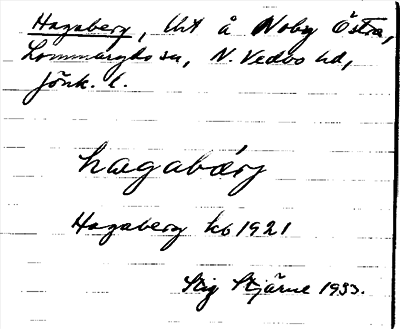 Hagaberg, lht å Noby Östra,
Lommaryds sn, N. Vedbo hd,
Jönk. l.
hagabærj
Hagaberg kb 1921
Stig Stjärne 1933.